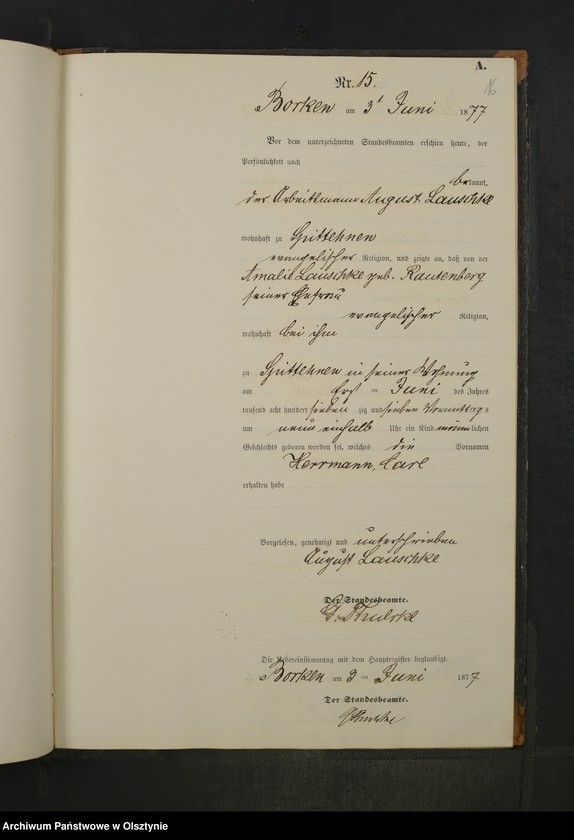 A.
Nr. 15.
16
Borken am 3t Juni 1877
Vor dem unterzeichneten Standesbeamten erschien heute, der
Persönlichkeit nach
bekannt,
der Arbeitsmann August Lauschke
wohnhaft zu Spittehnen
evangelischer Religion, und zeigte an, daß von der
Amalie Lauschke geb. Rautenberg
seiner Ehefrau
evangelischer Religion,
wohnhaft bei ihm
zu Spittehnen in seiner Wohnung
am Erst = Juni des Jahres
tausend acht hundert sieben zig und sieben Vormittag=
um neun einhalb Uhr ein Kind männlichen
Geschlechts geboren worden sei, welches die Vornamen
Herrmann, Carl
erhalten habe
Vorgelesen, genehmigt und unterschrieben
August Lauschke
Der Standesbeamte.
Die Uebereinstimmung mit dem Hauptregister beglaubigt.
Borken am 3 = Juni 1877
Der Standesbeamte.
Archiwum Państwowe w Olsztynie